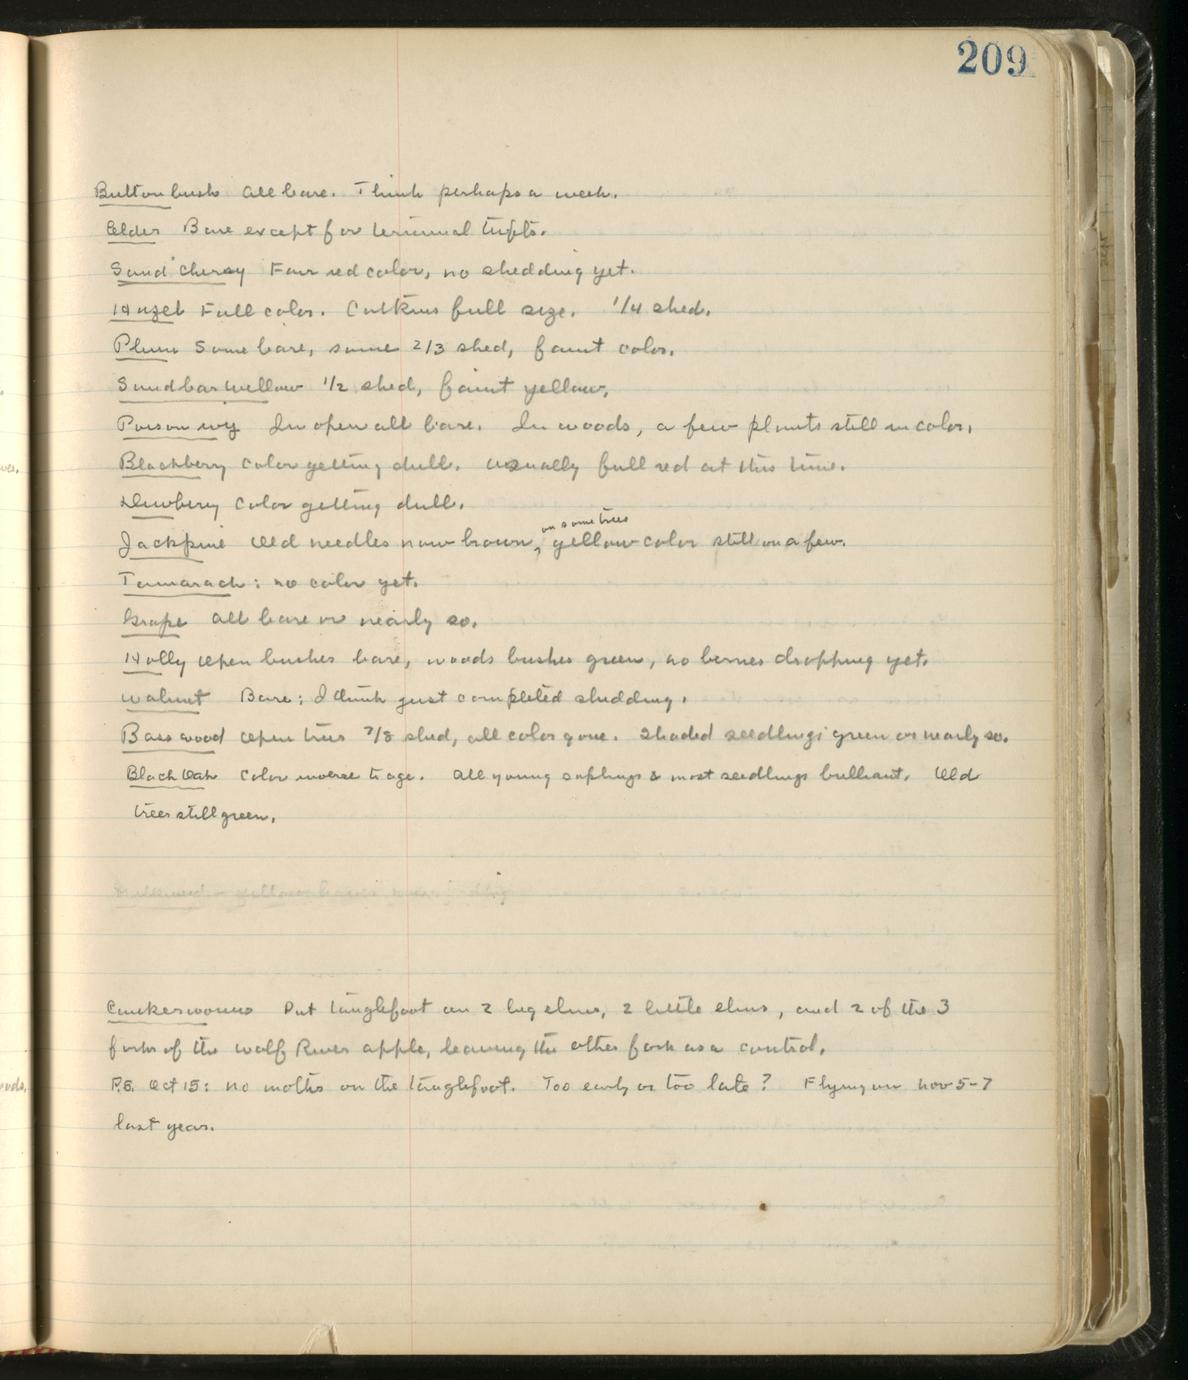 209
Buttonbush All bare. Think perhaps a week.
Elder Bare except for terminal tufts.
Sand Cherry Fair red color, no shedding yet.
Hazel Full color. Catkins full size. 1/4 shed.
Plum Some bare, some 2/3 shed, faint color.
Sandbar Willow 1/2 shed, faint yellow.
Poison ivy In open all bare. In woods, a few plants still in color.
Blackberry Color getting dull. Usually full red at this time.
Dewberry Color getting dull.
Jackpine Old needles now brown, on some trees yellow color still on a few.
Tamarack: no color yet.
Grape All bare or nearly so.
Holly Open bushes bare, woods bushes green, no berries dropping yet.
Walnut Bare; I think just completed shedding.
Basswood Open trees 7/8 shed, all color gone. Shaded seedlings green or nearly so.
Black Oak Color inverse to age. All young saplings & most seedlings brilliant. Old
trees still green.
Cankerworms Put tanglefoot on 2 big elms, 2 little elms, and 2 of the 3
forks of the Wolf River apple, leaving the other fork as a control.
P.S. Oct 15: no moths on the tanglefoot. Too early or too late? Flying on Nov 5-7
last year.